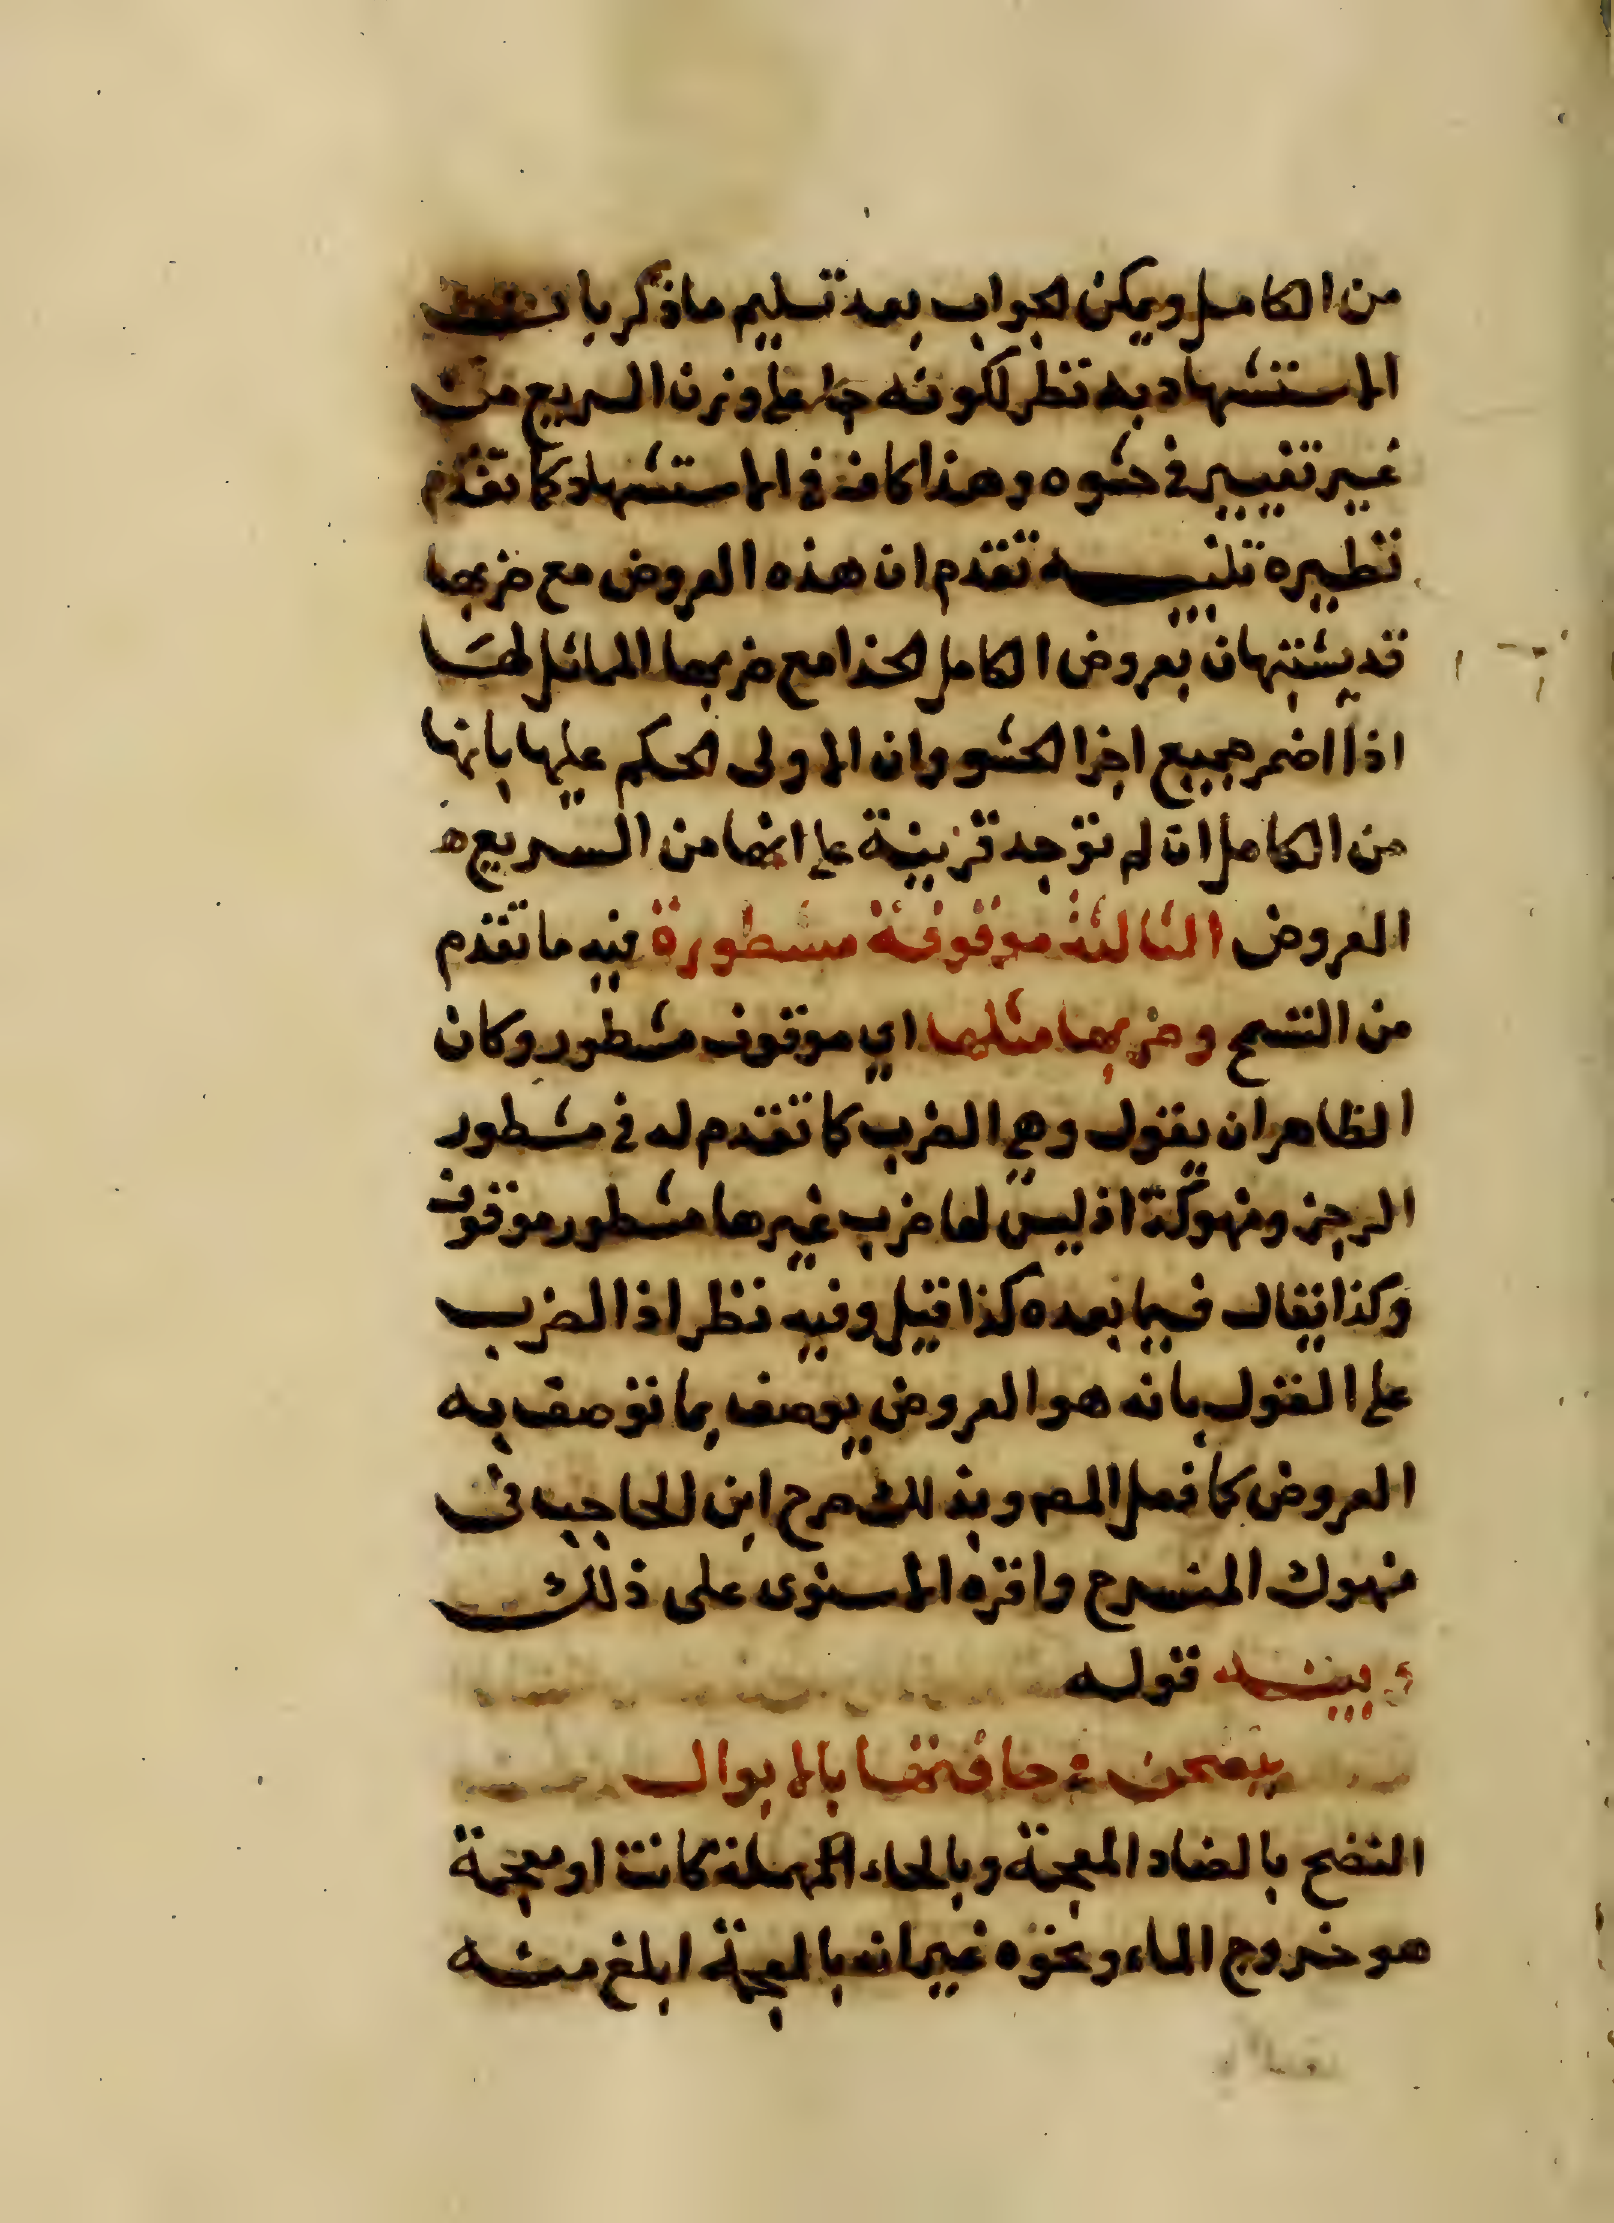 من الكامل ويمكن الجواب بعد تسليم ما ذكر بان
الاستشهاد به نظر لكونه جا على وزن السريع من
غير تغيير في حشوه وهذا كاف في الاستشهاد كما تقدم
نظيره تنبيه تقدم ان هذه العروض مع ضربها
قد يشتبهان بعروض الكامل الحذا مع ضربها المماثل لها
اذا اضمر جميع اجزا الحشو وان الاولى الحكم عليها بانها
من الكامل ان لم توجد قرينة على انها من السريع ه
العروض الثالثة موقوفة مشطورة فيه ما تقدم
من التسمح وضربها مثلها اي موقوف مشطور وكان
الظاهر ان يقول وهي الضرب كما تقدم له في مشطور
الرجز ومنهوكه اذ ليس لها ضرب غيرها مشطور موقوف
وكذا يقال فيما بعده كذا قيل وفيه نظر اذ الضرب
على القول بانه هو العروض يوصف بما توصف به
العروض كما فعل المص وبذلك صرح ابن الحاجب في
منهوك المنسرح واقره الاسنوى على ذلك
وبيته قوله
ينضحن في حافتها بالابوال
النضح بالضاد المعجمة وبالحاء المهملة كانت او معجمة
هو خروج الماء ونحوه غير انه بالمعجمة ابلغ منه